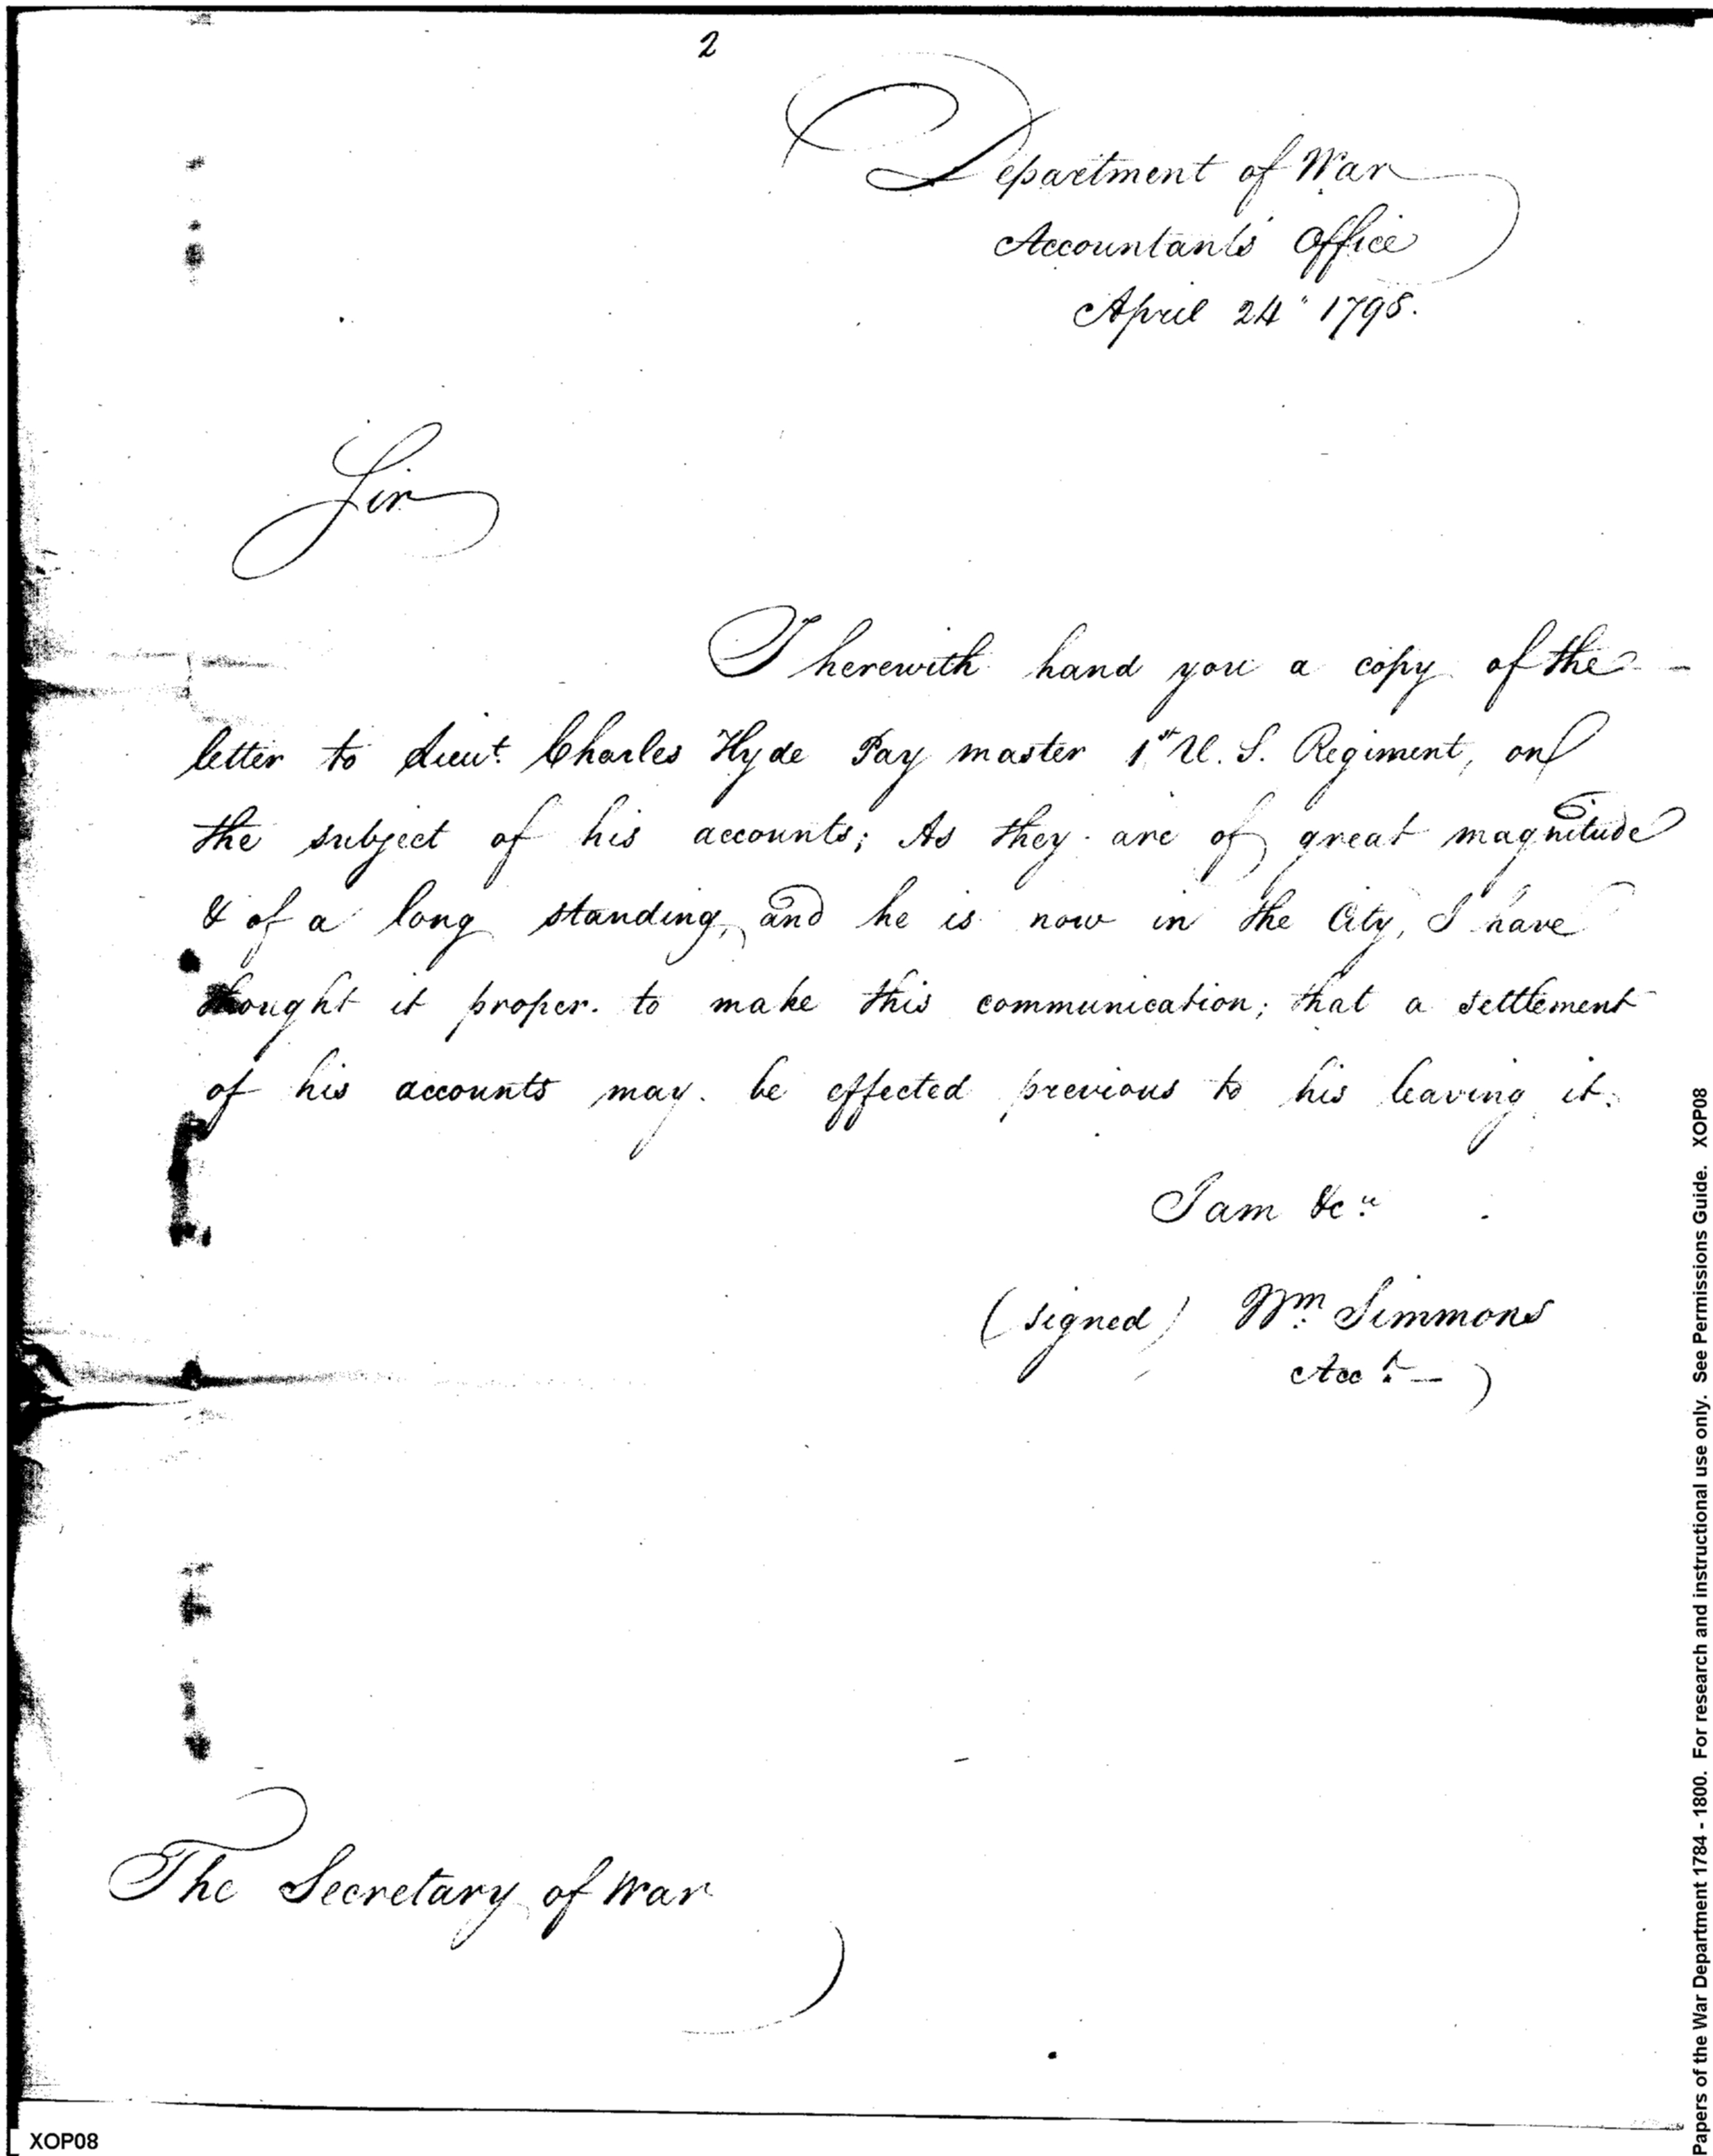 2
Department of War
Accountants Office
April 24" 1798.
Sir
I herewith hand you a copy of the
letter to Lieut. Charles Hyde Pay master 1st U. S. Regiment, on
the subject of his accounts; As they are of great magnitude
& of a long standing, and he is now in the City, I have
thought it proper to make this communication; that a settlement
of his accounts may be effected previous to his leaving it.
I am &c"
(signed) Wm. Simmons
Acct.—)
The Secretary of War
XOP08
Papers of the War Department 1784 - 1800. For research and instructional use only. See Permissions Guide. XOP08